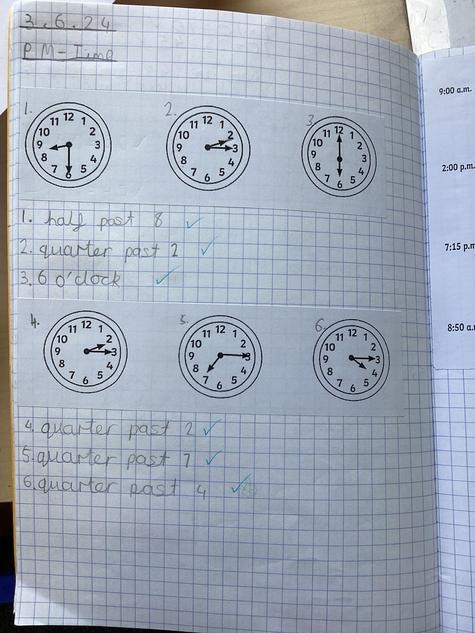 3.6.24
PM-Time
9:00 a.m.
1. 2. 3.
11 12 1
10 2
9 3
8 4
7 6 5
11 12 1
10 2
9 3
8 4
7 6 5
11 12 1
10 2
9 3
8 4
7 6 5
2:00 p.m.
1. half past 8
2. quarter past 2
3. 6 o'clock
7:15 p.m
4. 5. 6.
11 12 1
10 2
9 3
8 4
7 6 5
11 12 1
10 2
9 3
8 4
7 6 5
11 12 1
10 2
9 3
8 4
7 6 5
8:50 a.m.
4. quarter past 2
5. quarter past 7
6. quarter past 4